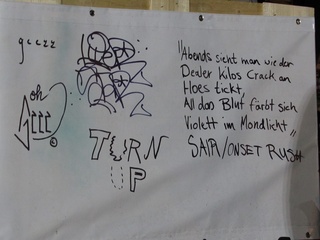 gcczz
oh
Geee
©
TURN
UP
"Abends sieht man wie der
Dealer kilos Crack an
Hoes tickt,
All das Blut färbt sich
Violett im Mondlicht"
SAIR/ONSET RUSH